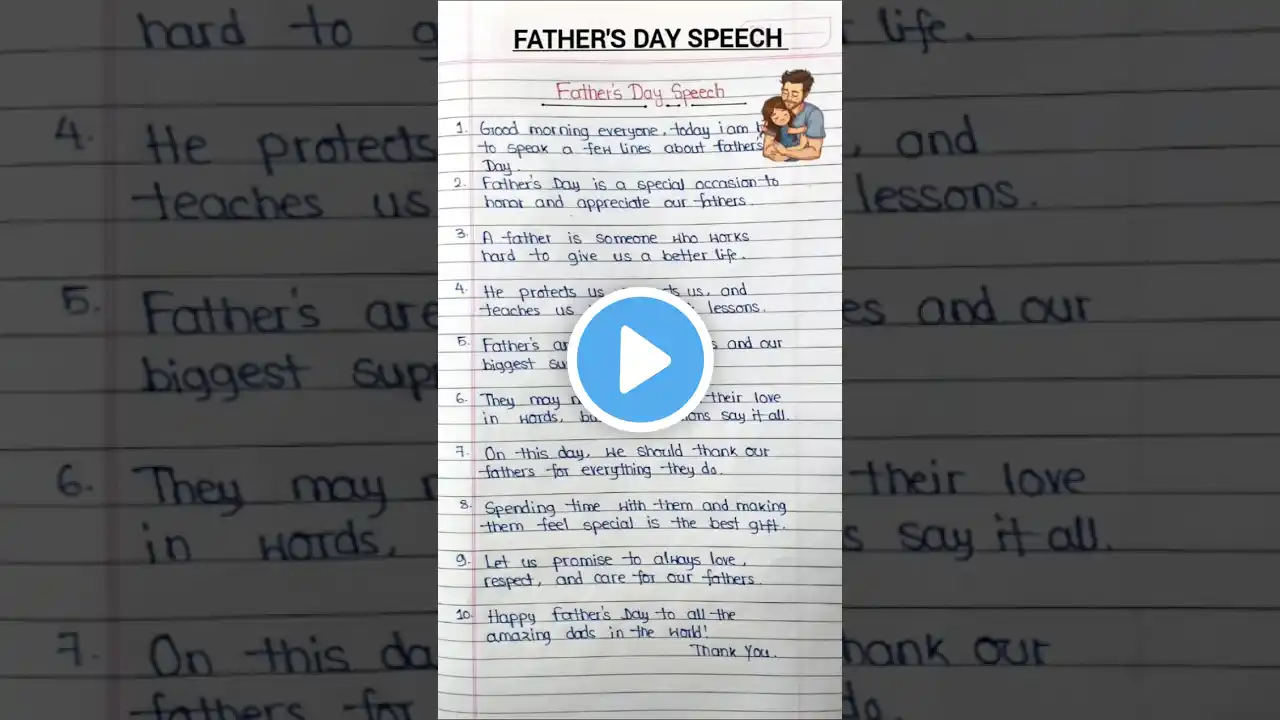 FATHER'S DAY SPEECH
Father's Day Speech
1. Good morning everyone, today i am
to speak a few lines about fathers
Day.
2. Father's Day is a special occasion to
honor and appreciate our fathers.
3. A father is someone who works
hard to give us a better life.
4. He protects us, us, and
teaches us lessons.
5. Father's and our
biggest
6. They may their love
in words, say it all.
7. On this day, we should thank our
fathers for everything they do.
8. Spending time with them and making
them feel special is the best gift.
9. Let us promise to always love,
respect, and care for our fathers.
10. Happy father's Day to all the
amazing dads in the world!
Thank You.